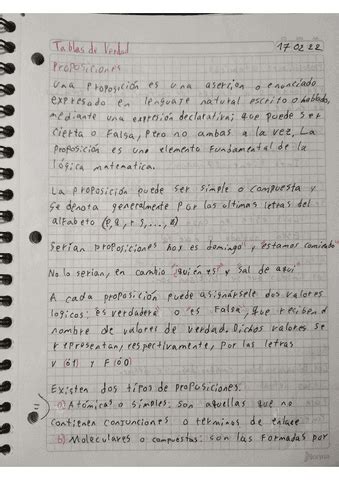 Tablas de Verdad 17 02 22
Proposiciones
una proposición es una asercion o enunciado
expresado en lenguaje natural escrito o hablado,
mediante una expresión declarativa; que puede ser
cierta o Falsa, Pero no ambas a la vez, La
Proposición es uno elemento fundamental de la
lógica matematica.
La proposición puede ser simple o compuesta y
se denota generalmente por las ultimas letras del
alfabeto (p, q, r, s, ..., z)
Serian proposiciones hoy es domingo y estamos comiendo
No lo serian, en cambio ¿Quién es? y Sal de aqui
A cada proposición puede asignársele dos valores
logicos: es verdadera o es Falsa, que reciben el
nombre de valores de verdad. Dichos valores se
representan, respectivamente, por las letras
V (ó1) y F (ó0)
Existen dos tipos de proposiciones.
a) Atómicas o simples: son aquellas que no
contienen conjunciones o terminos de enlace
b) Moleculares o compuestas: son las formadas por
Norma